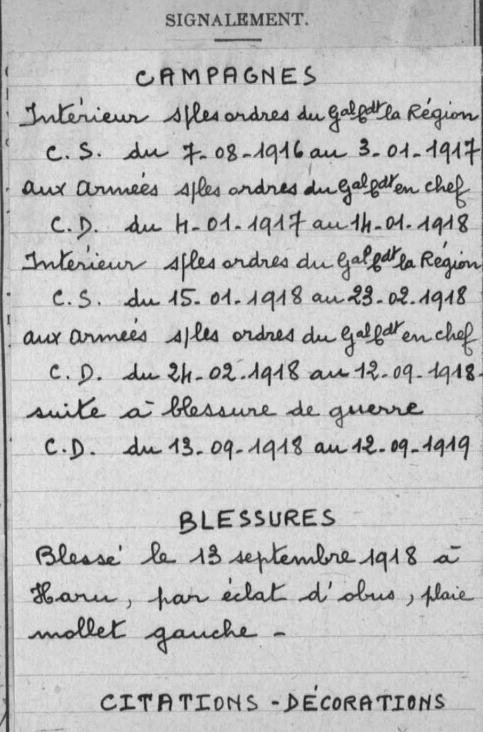 SIGNALEMENT.
CAMPAGNES
Intérieur s/les ordres du Gal Cdt la Région
C. S. du 7-08-1916 au 3-01-1917
aux armées s/les ordres du Gal Cdt en chef
C. D. du 4-01-1917 au 14-01-1918
Intérieur s/les ordres du Gal Cdt la Région
C. S. du 15-01-1918 au 23-02-1918
aux armées s/les ordres du Gal Cdt en chef
C. D. du 24-02-1918 au 12-09-1918-
suite à blessure de guerre
C.D. du 13-09-1918 au 12-09-1919
BLESSURES
Blessé le 13 septembre 1918 à
Haru, par éclat d'obus, plaie
mollet gauche -
CITATIONS - DÉCORATIONS